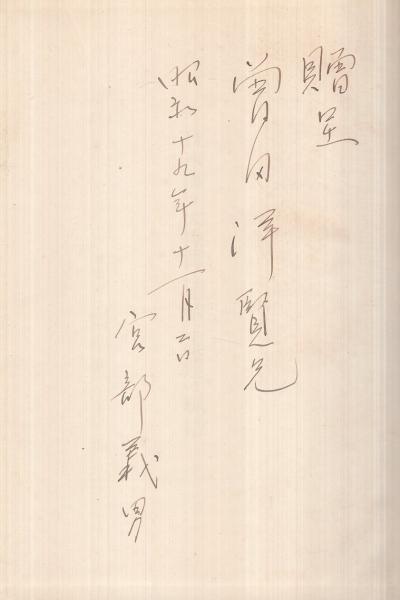 贈呈
曽田洋賢兄
昭和十九年十一月二日
宮部義男